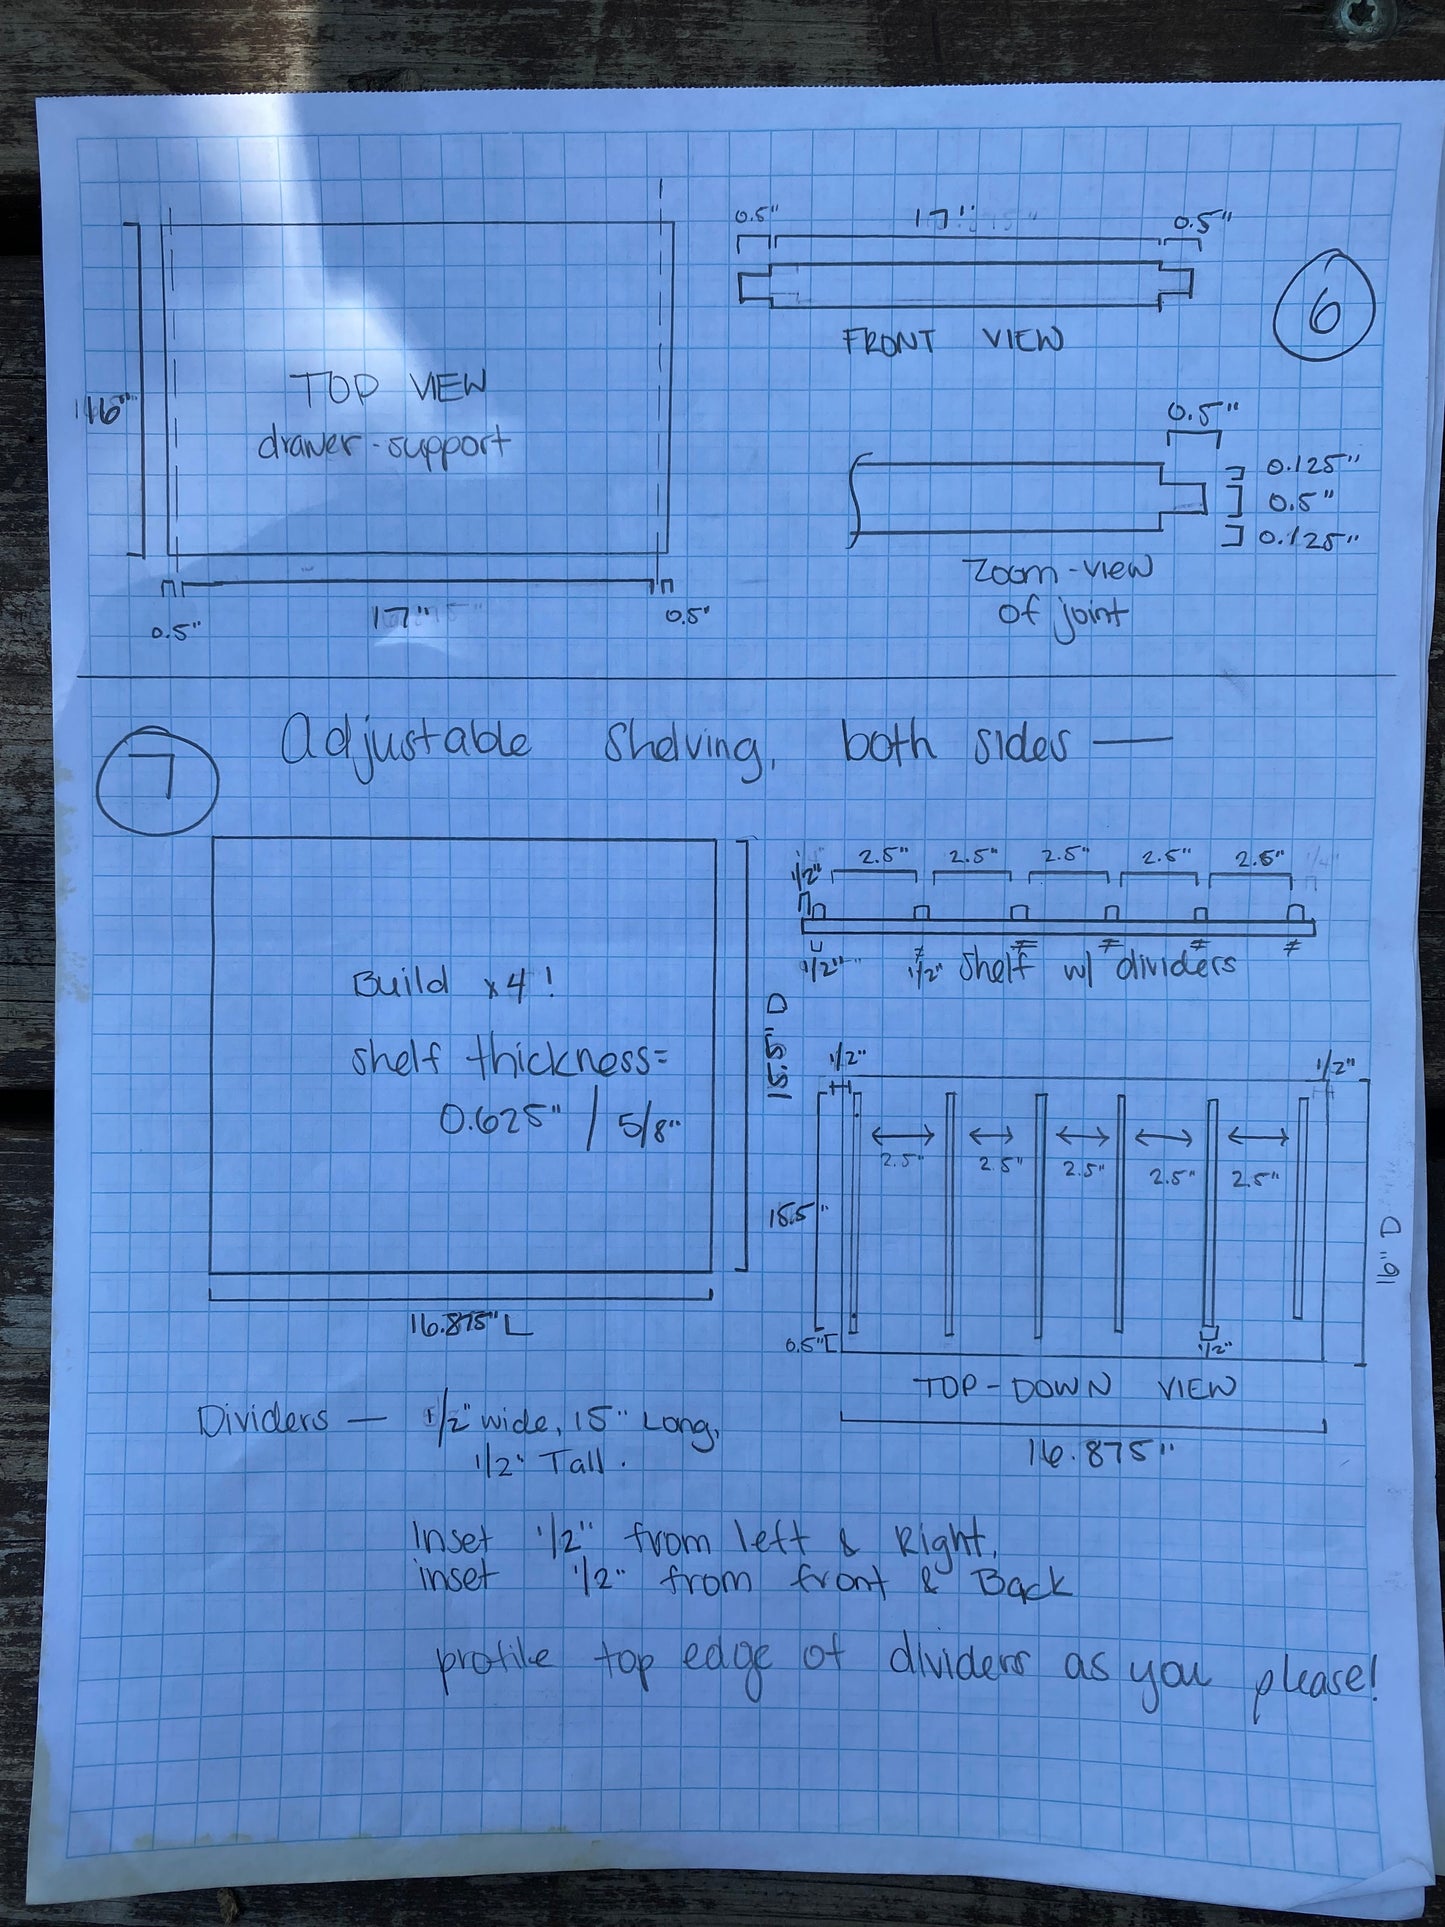 0.5" 17" 0.5"
6
FRONT VIEW
TOP VIEW
drawer-support
16"
0.5"
0.125"
0.5"
0.125"
Zoom-view
of joint
0.5" 17" 0.5"
7
Adjustable Shelving, both sides —
1/2" 2.5" 2.5" 2.5" 2.5" 2.5"
1/2" 1/2" shelf w/ dividers
Build x4!
shelf thickness=
0.625" / 5/8"
15.5" D
16.875" L
1/2" 1/2"
2.5" 2.5" 2.5" 2.5" 2.5"
15.5"
16" D
0.5" 1/2"
TOP-DOWN VIEW
16.875"
Dividers — 1/2" wide, 15" Long,
1/2" Tall.
Inset 1/2" from left & Right,
inset 1/2" from front & Back
profile top edge of dividers as you please!